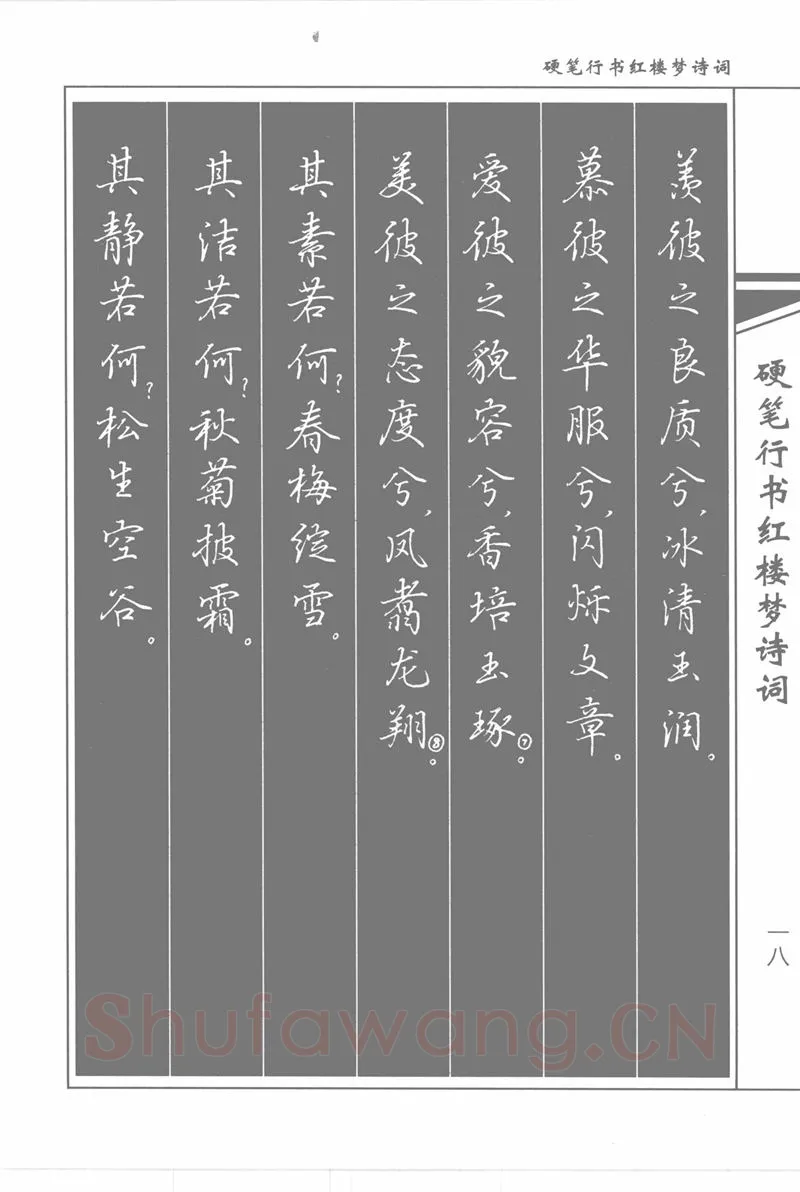 硬笔行书红楼梦诗词
羡彼之良质兮，冰清玉润。
慕彼之华服兮，闪烁文章。
爱彼之貌容兮，香培玉琢⑦。
美彼之态度兮，凤翥龙翔⑧。
其素若何？春梅绽雪。
其洁若何？秋菊披霜。
其静若何？松生空谷。
硬笔行书红楼梦诗词
一八
Shufawang.CN